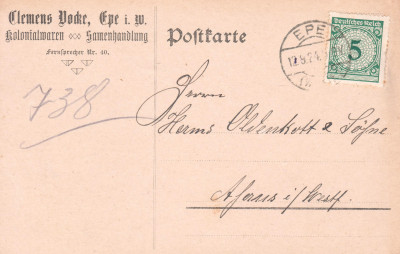 Clemens Vocke, Epe i. W.
Kolonialwaren Samenhandlung
Fernsprecher Nr. 40.
738
Postkarte
EPE
Deutsches Reich
5
Herrn
Herms Oldenkott & Söhne
Ahaus i/Westf.